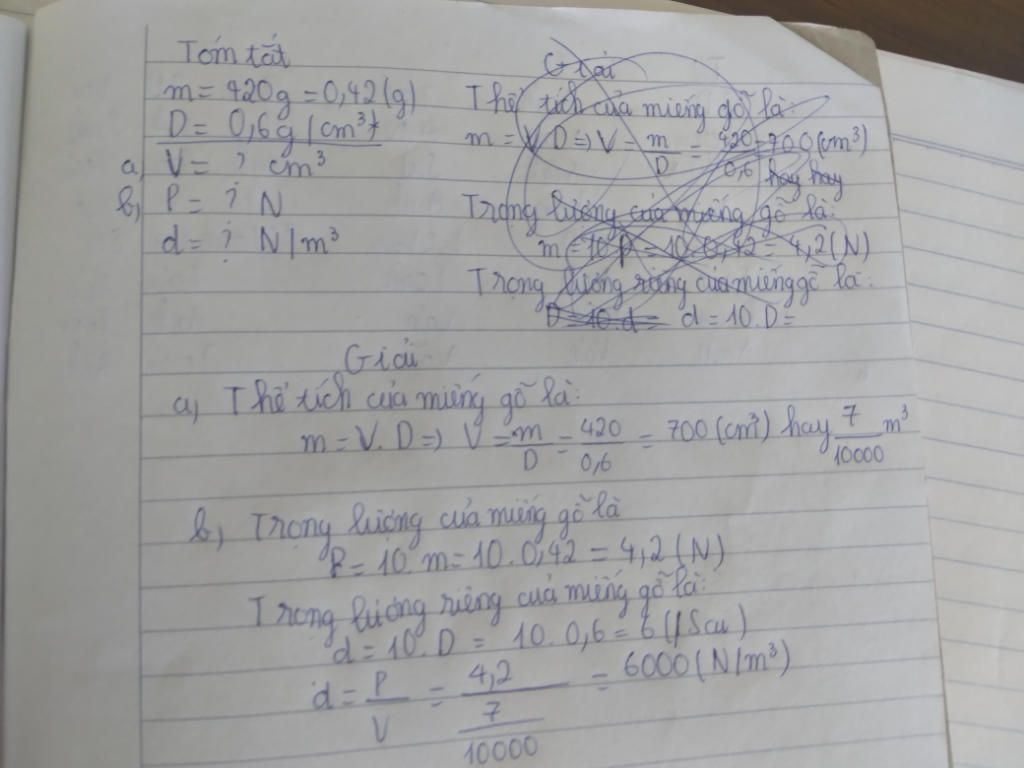 Tóm tắt
m = 420g = 0,42(g)
D = 0,6g/cm³
a, V = ? cm³
b, P = ? N
d = ? N/m³
Giải
Thể tích của miếng gỗ là:
m = V.D => V = m/D = 420/0,6 = 700(cm³)
hay hay
Trọng lượng của miếng gỗ là:
m = 10.P = 10.0,42 = 4,2(N)
Trọng lượng riêng của miếng gỗ là:
D = 10.d = d = 10.D =
Giải
a, Thể tích của miếng gỗ là:
m = V.D => V = m/D = 420/0,6 = 700(cm³) hay 7/10000 m³
b, Trọng lượng của miếng gỗ là
P = 10.m = 10.0,42 = 4,2(N)
Trọng lượng riêng của miếng gỗ là:
d = 10.D = 10.0,6 = 6
d = P/V = 4,2/(7/10000) = 6000(N/m³)